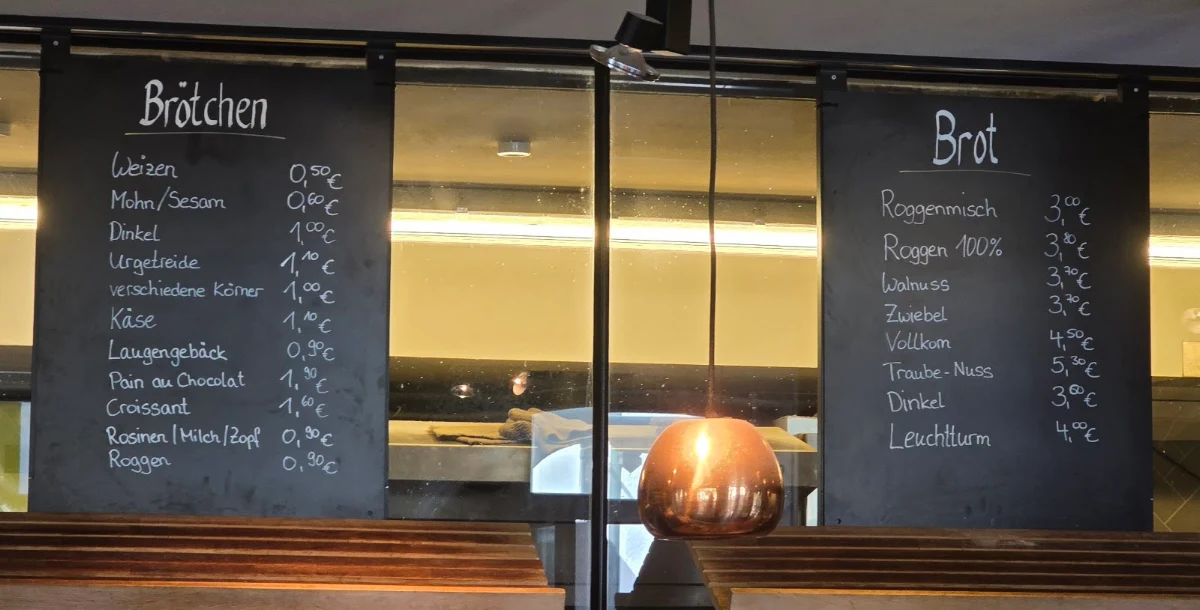 Brötchen
Weizen 0,50€
Mohn/Sesam 0,60€
Dinkel 1,00€
Urgetreide 1,10€
verschiedene Körner 1,00€
Käse 1,10€
Laugengebäck 0,90€
Pain au Chocolat 1,90€
Croissant 1,60€
Rosinen/Milch/Zopf 0,90€
Roggen 0,90€
Brot
Roggenmisch 3,00€
Roggen 100% 3,80€
Walnuss 3,70€
Zwiebel 3,70€
Vollkorn 4,50€
Traube-Nuss 5,30€
Dinkel 3,60€
Leuchtturm 4,00€